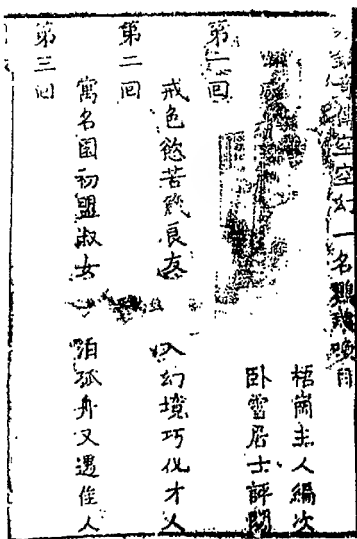 空空幻一名鸚鵡喚目
梧崗主人編次
卧雪居士評閱
第一回
戒色慾苦㦬良友 入幻境巧化才人
第二回
寓名園初盟淑女 泊孤舟又遇佳人
第三回